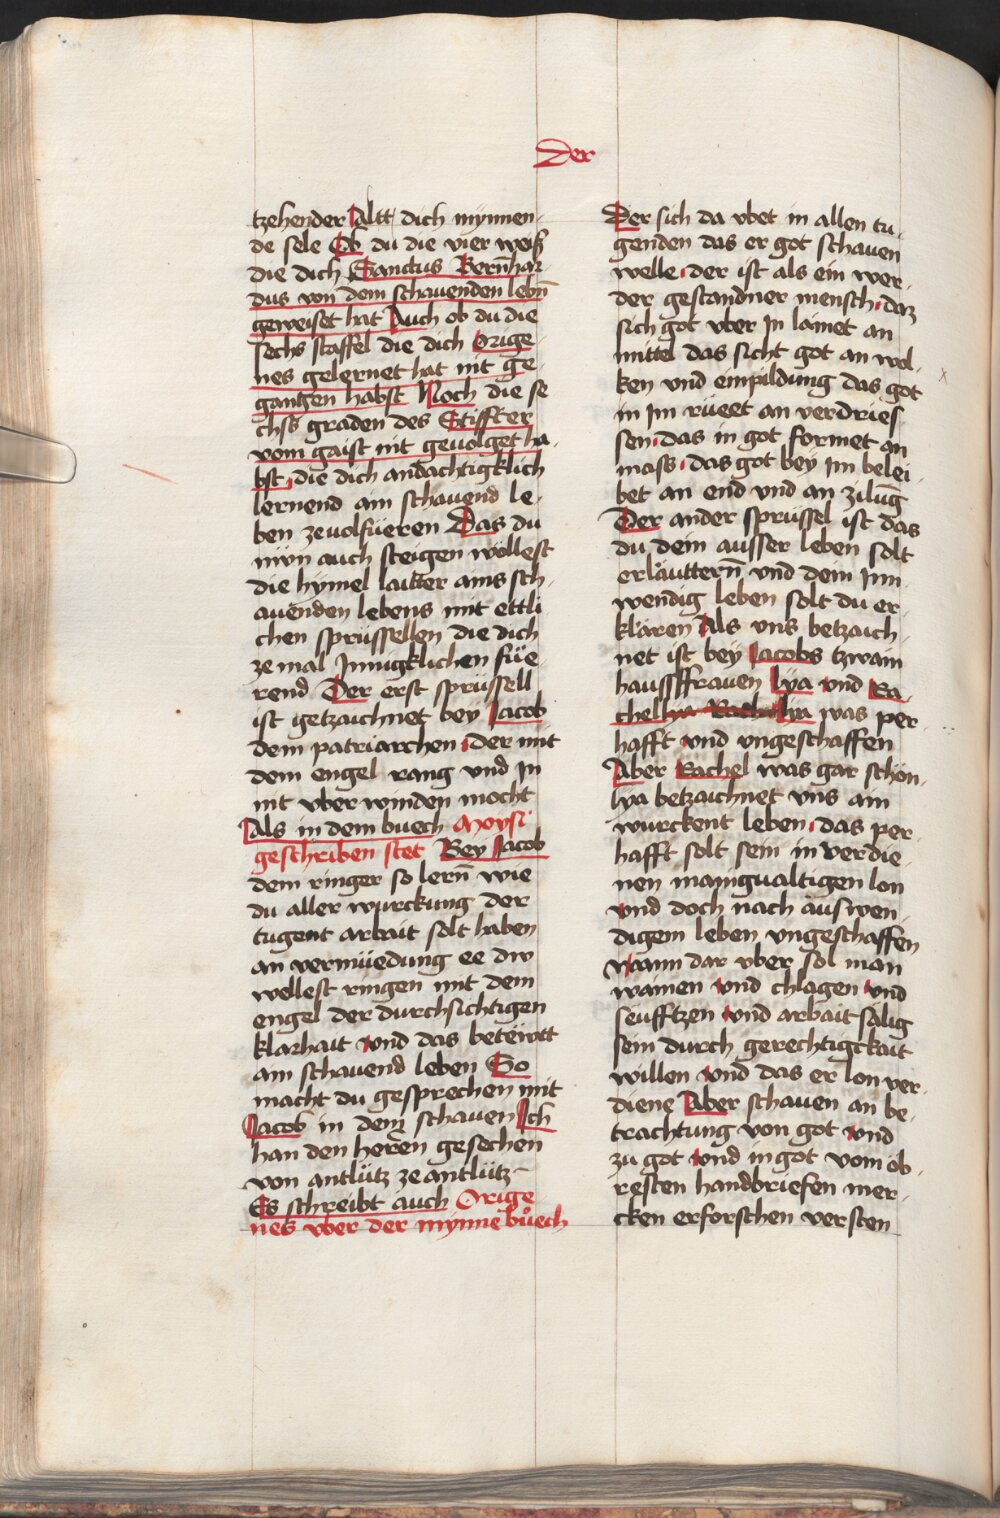 Der
tzehender Altt dich mÿnnen-
de sele Ob du die vier weiß
die dich Sanctus Bern̄har
dus von dem schauenden lebn̄
geweiset hat Auch ob du die
sechs staffel die dich Orige
nes gelernet hat nit ge-
gangen habst Noch die se
chss graden des Stiffter
vom gaist nit geuolget ha-
bst, die dich andächtigklich
lernend am schauend le-
ben zeuolfüeren Das du
nw̄n auch steigen wöllest
die hÿmel laitter ains sch-
auenden lebens mit ettli
chen sprüssellen die dich
ze mal Jnnigklichen füe-
rend Der erst sprüssell
ist getzaichnet beÿ Jacob
dem patriarchen, der mit
dem engel rang vnd Jn
nit vber winden mocht
Als in dem buech Moÿsi
geschriben stet Beÿ Jacob
dem ringer so lern̄ wie
du aller wurckung der
tugent arbait solt haben
an vermüedung ee dw
wellest ringen mit dem
engel der durchsichtigen
klarhait vnd das betëwtt
am schauend leben So
macht du gesprechen mit
Jacob in dem schauen Ich
han den heren gesechen
von antlütz ze antlütz
Es schreibt auch Orige
nes vber der mÿnne bůech
Der sich da vbet in allen tu-
genden das er got schauen
welle, der ist als ein wer-
der gestandner mensch, daz
sich got vber Jn lainet an
mittel das sicht got an wol-
ken vnd einpildung das got
in Jm rüeet an verdries
sen, das in got formet an
mass, das got beÿ Jm belei-
bet an end vnd an zilūg
Der ander sprüssel ist das
du dein ausser leben solt
erläuttern̄ vnd dein Jnn-
wendig leben solt du er-
klären Als vns betzaich-
net ist beÿ Jacobs tzwain
haussffrauen Lÿa vnd Ra-
chel lÿa Rachel lÿa was per-
hafft vnd vngeschaffen
Aber Rachel was gar schön-
lÿa betzaichnet vns ain
würckent leben, das per-
hafft solt sein in verdie-
nen manigualtigen lon
vnd doch nach auswen-
digem leben vngeschaffen
wann dar vber sol man
wainen vnd chlagen vnd
seufftzen vnd arbait sälig
sein durch gerechtigckait
willen vnd das er lon ver-
diene Aber schauen an be-
trachtung von got vnd
zu got vnd in got vom ob-
resten handbriefen mer-
cken erforschen versten